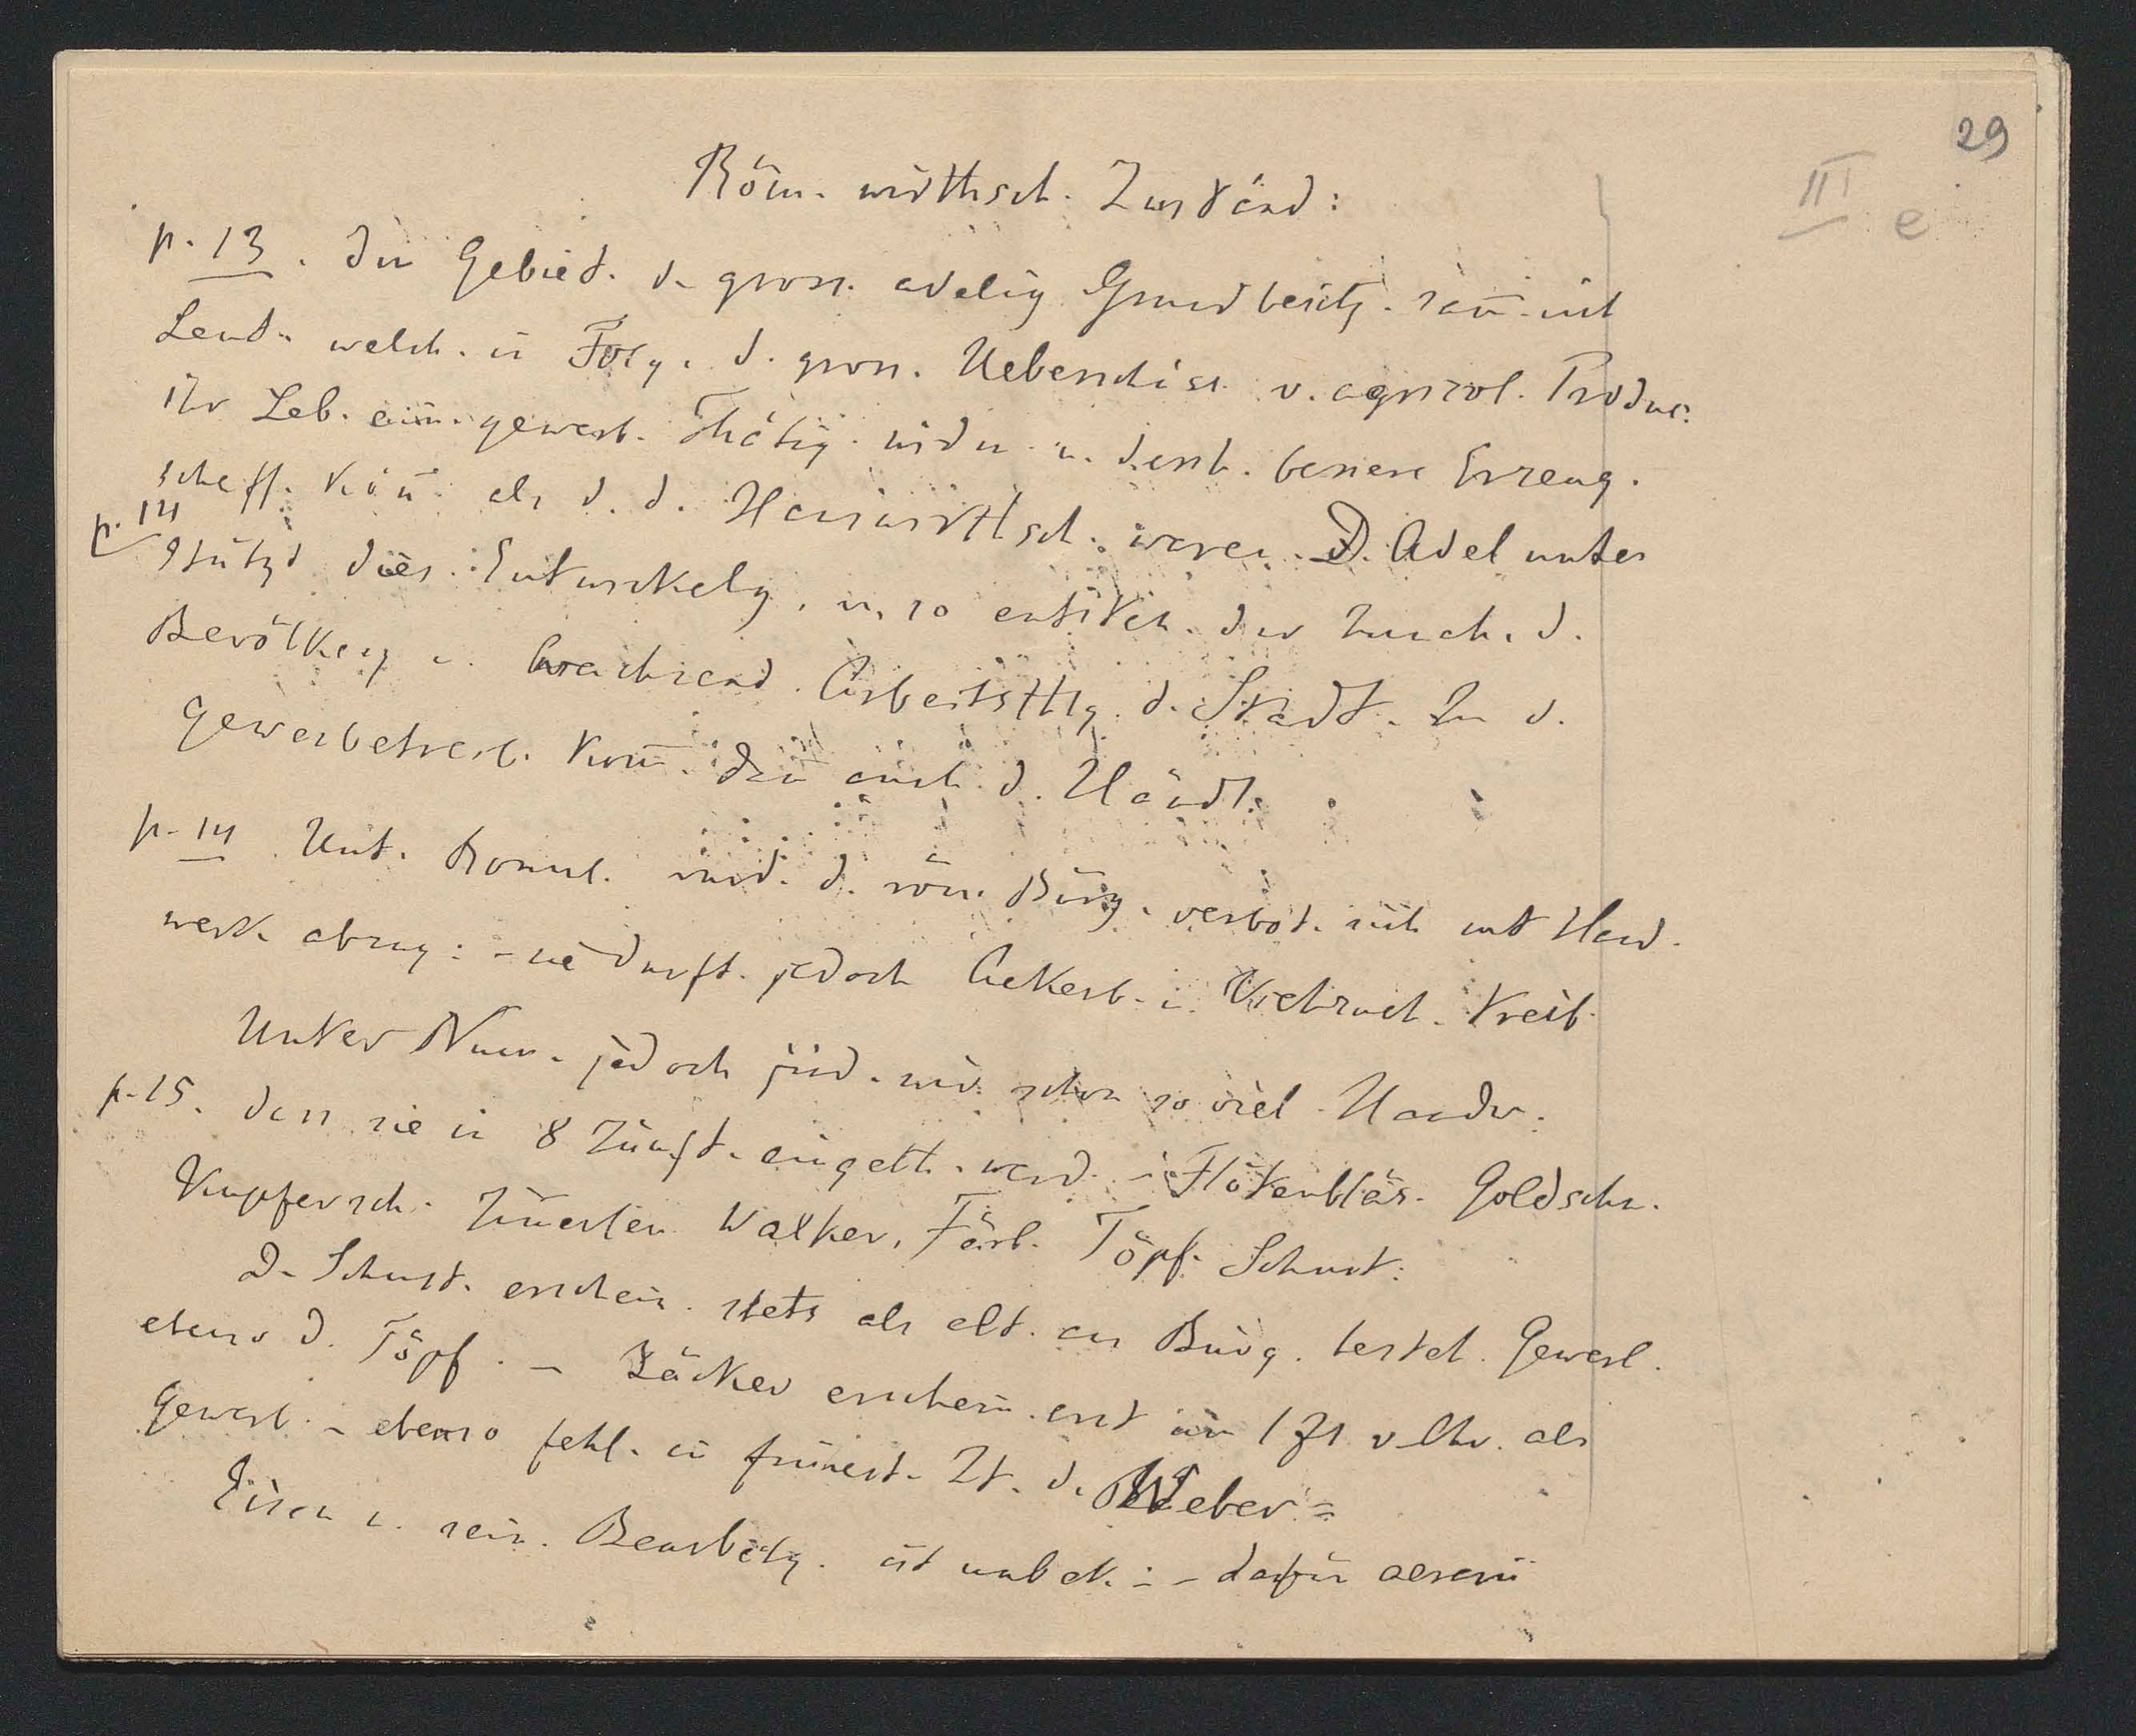 29
III e
Röm. wirthsch. Zuständ:
p. 13. In Gebiet. d. gross. adelig Grundbesitz. samm. sich
Leut. welch. in Folg. d. gross. Ueberschüss. v. agricol. Produc.
ihr Leb. ein. gewerb. Thätig. widm. u. desh. bessere Erzeug.
schaff. könn. als d. d. Hauswirthsch. waren. D. Adel unter
p. 14
stützt dies. Entwickelg. u. so entsteh. der Zusch. d.
Bevölkerg u. wachsend. Arbeitsthlg. d. Stadt. Zu d.
Gewerbetreib. komm. dan auch d. Händl.
p. 14 Unt. Romul. wird. d. röm. Bürg. verbot. sich mit Hand-
werk. abzug: - sie durft. jedoch Ackerb. u. Viehzuch. treib.
Unter Num. jedoch find. wir schon so viel Handw.
p. 15. dass sie in 8 Zünft. eingeth. werd. - Flötenbläs. Goldschm.
Kupfersch. Zimerleu Walker, Färb. Töpf. Schust:
D. Schust. erschein. stets als elt. aus Bürg. besteh. Gewerb.
ebenso d. Töpf. - Bäcker erschein. erst im 1 Jh v Chr. als
Gewerb. - ebenso fehl. in frühest. Zt. d. Weber =
Eisen u. sein. Bearbeitg. ist unbek: - dafür